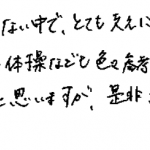 ない中で、とても支えに
体操なども色々参考
と思いますが、是非